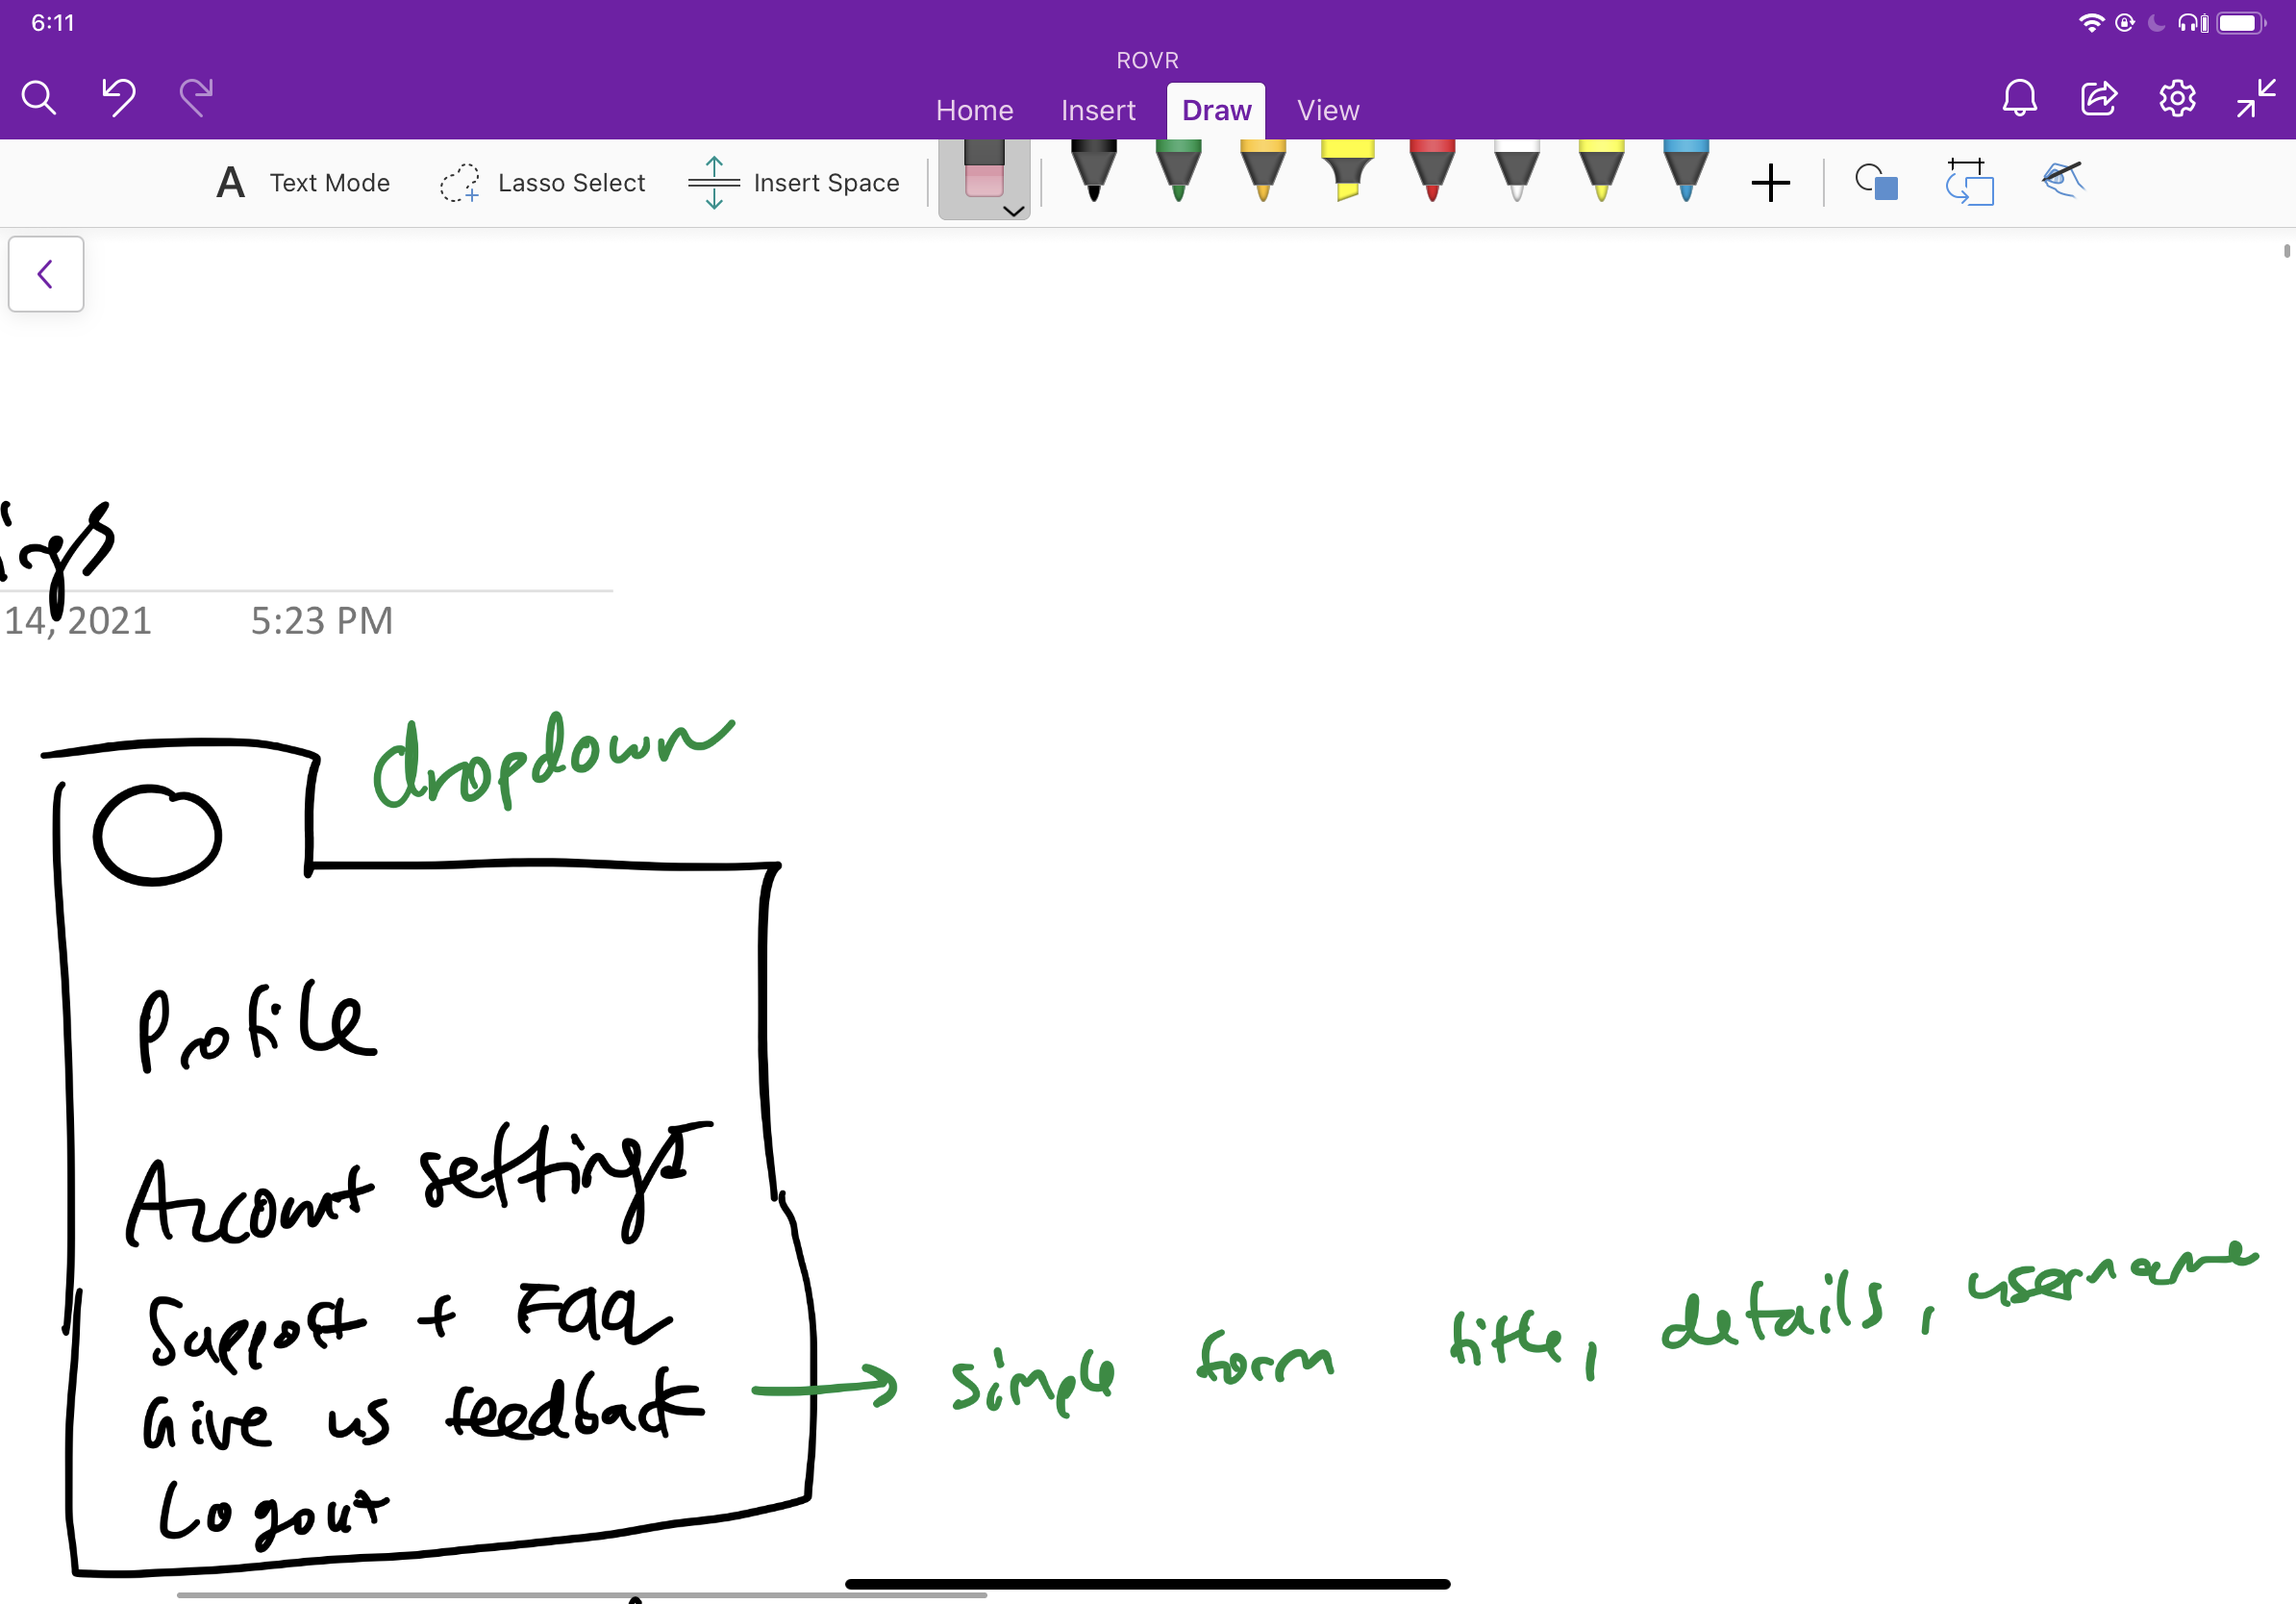 6:11
ROVR
Home Insert Draw View
A Text Mode Lasso Select Insert Space
14, 2021 5:23 PM
dropdown
Profile
Account settings
Support + FAQ
Give us feedback → simple form title, details, username
Logout